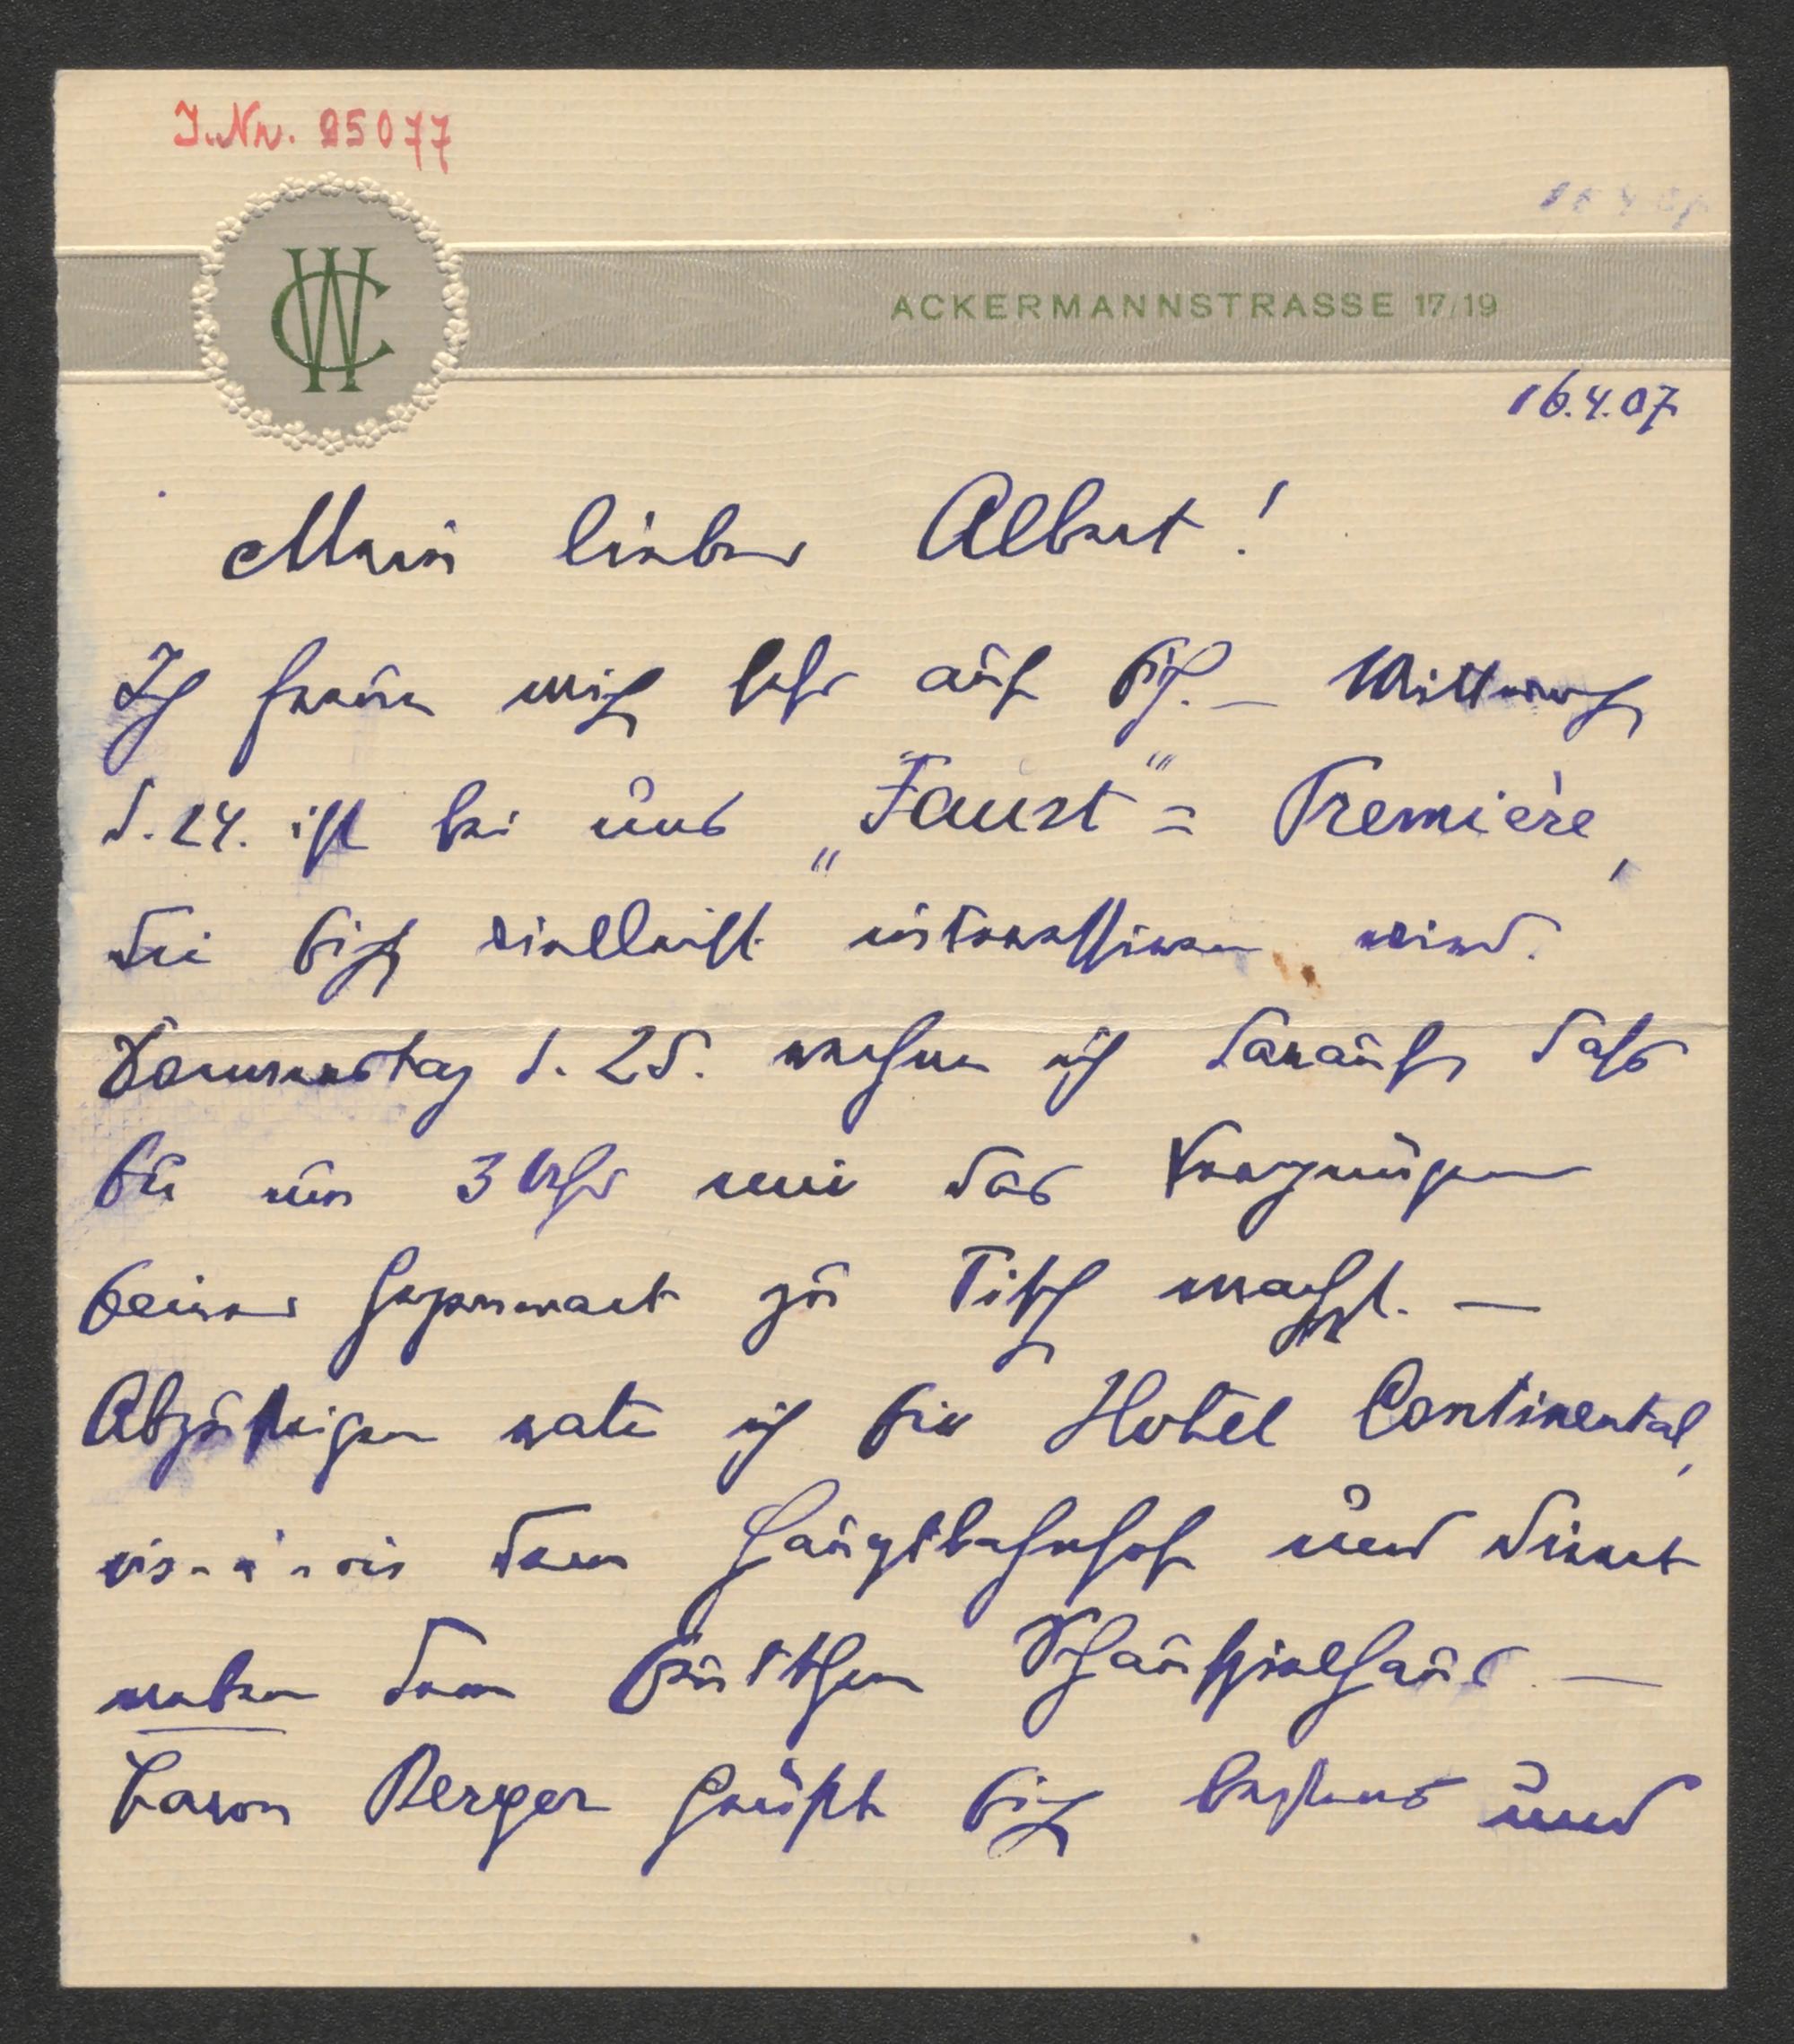 I.Nr. 95077
16.4.07
CW
ACKERMANNSTRASSE 17/19
16.4.07
Mein lieber Albert!
Ich freue mich sehr auf Dich. – Mittwoch
d. 24. ist bei uns „Faust“= Premiere,
die Dich vielleicht interessieren wird.
Donnerstag d. 25. rechne ich darauf, dass
Du um 3 Uhr mir das Vergnügen
Deiner Gegenwart zu Tisch machst. –
Abzusteigen rate ich Dir Hotel Continental,
vis-à-vis dem Hauptbahnhof und direct
neben dem Deutschen Schauspielhaus. –
Baron Berger grüßt Dich bestens und